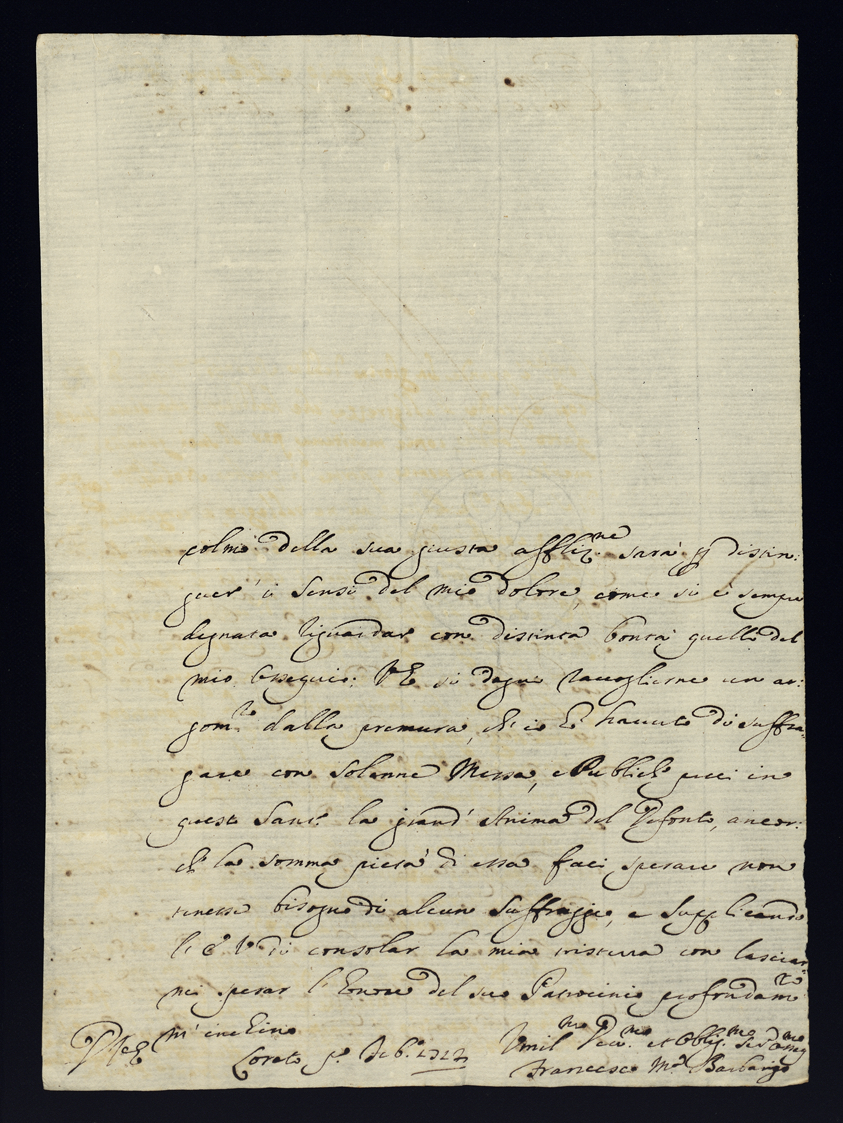 colmo della sua giusta affliz.ne sarà p distin:
guer' i sensi del mio dolore, come si è sempre
degnata riguardar con distinta bontà quelli del
mio ossequio: V E si degni raccoglierne un ar:
gom.to dalla premura, ch' io hò havuto di suffra:
gare con solenne Messa, e Publiche preci in
questo Sant.o la grand' Anima del Defonto, ancor:
che la somma pietà di essa facci sperare non
tenesse bisogno di alcun suffragio, e supplicando
l' E V di consolar la mia tristezza con lasciar
mi sperar l' honore del suo Patrocinio profondam.te
m' inchino
V E
Loreto p.o
Umil.mo Dev.mo et Obblig.mo
Francesco M.a Barbarigo